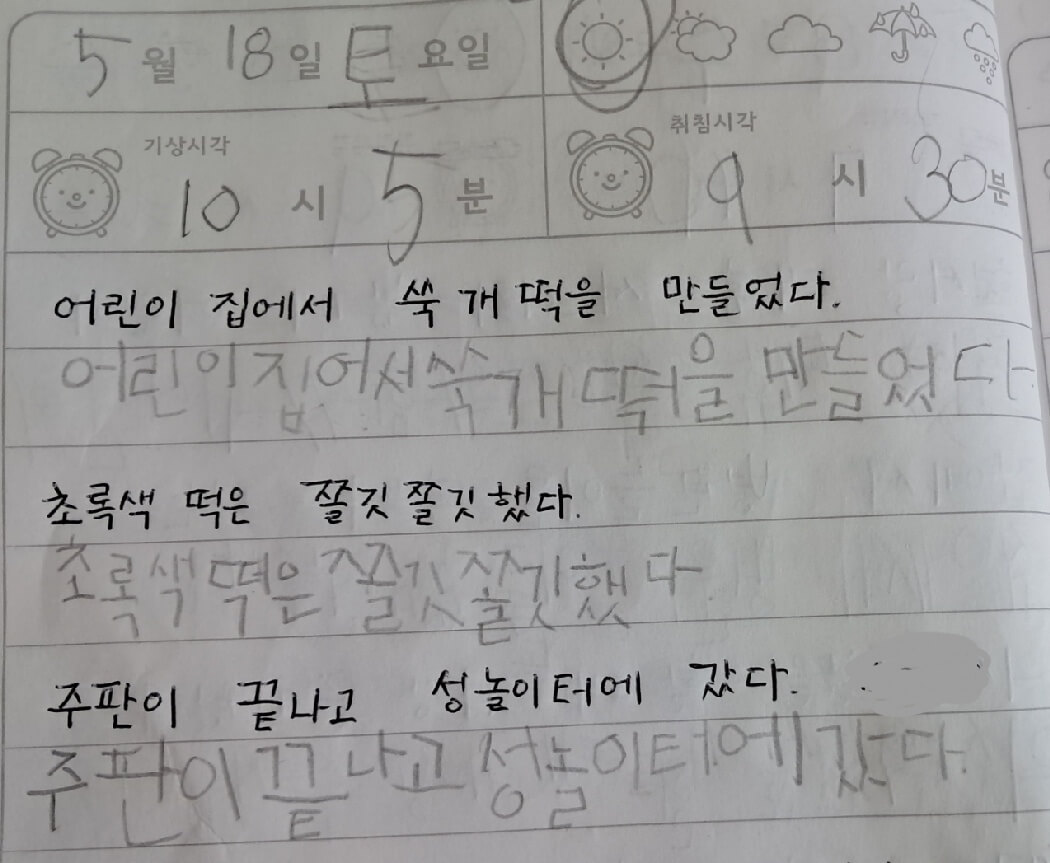 5월 18일 토요일
기상시각 취침시각
10시 5분 9시 30분
어린이 집에서 쑥 개떡을 만들었다.
어린이집어서쑥개떡을 만들었다
초록색 떡은 쫄깃쫄깃했다.
초록색떡은쫄깃쫄깃했다
주판이 끝나고 성놀이터에 갔다.
주판이끝나고성놀이터에갔다.